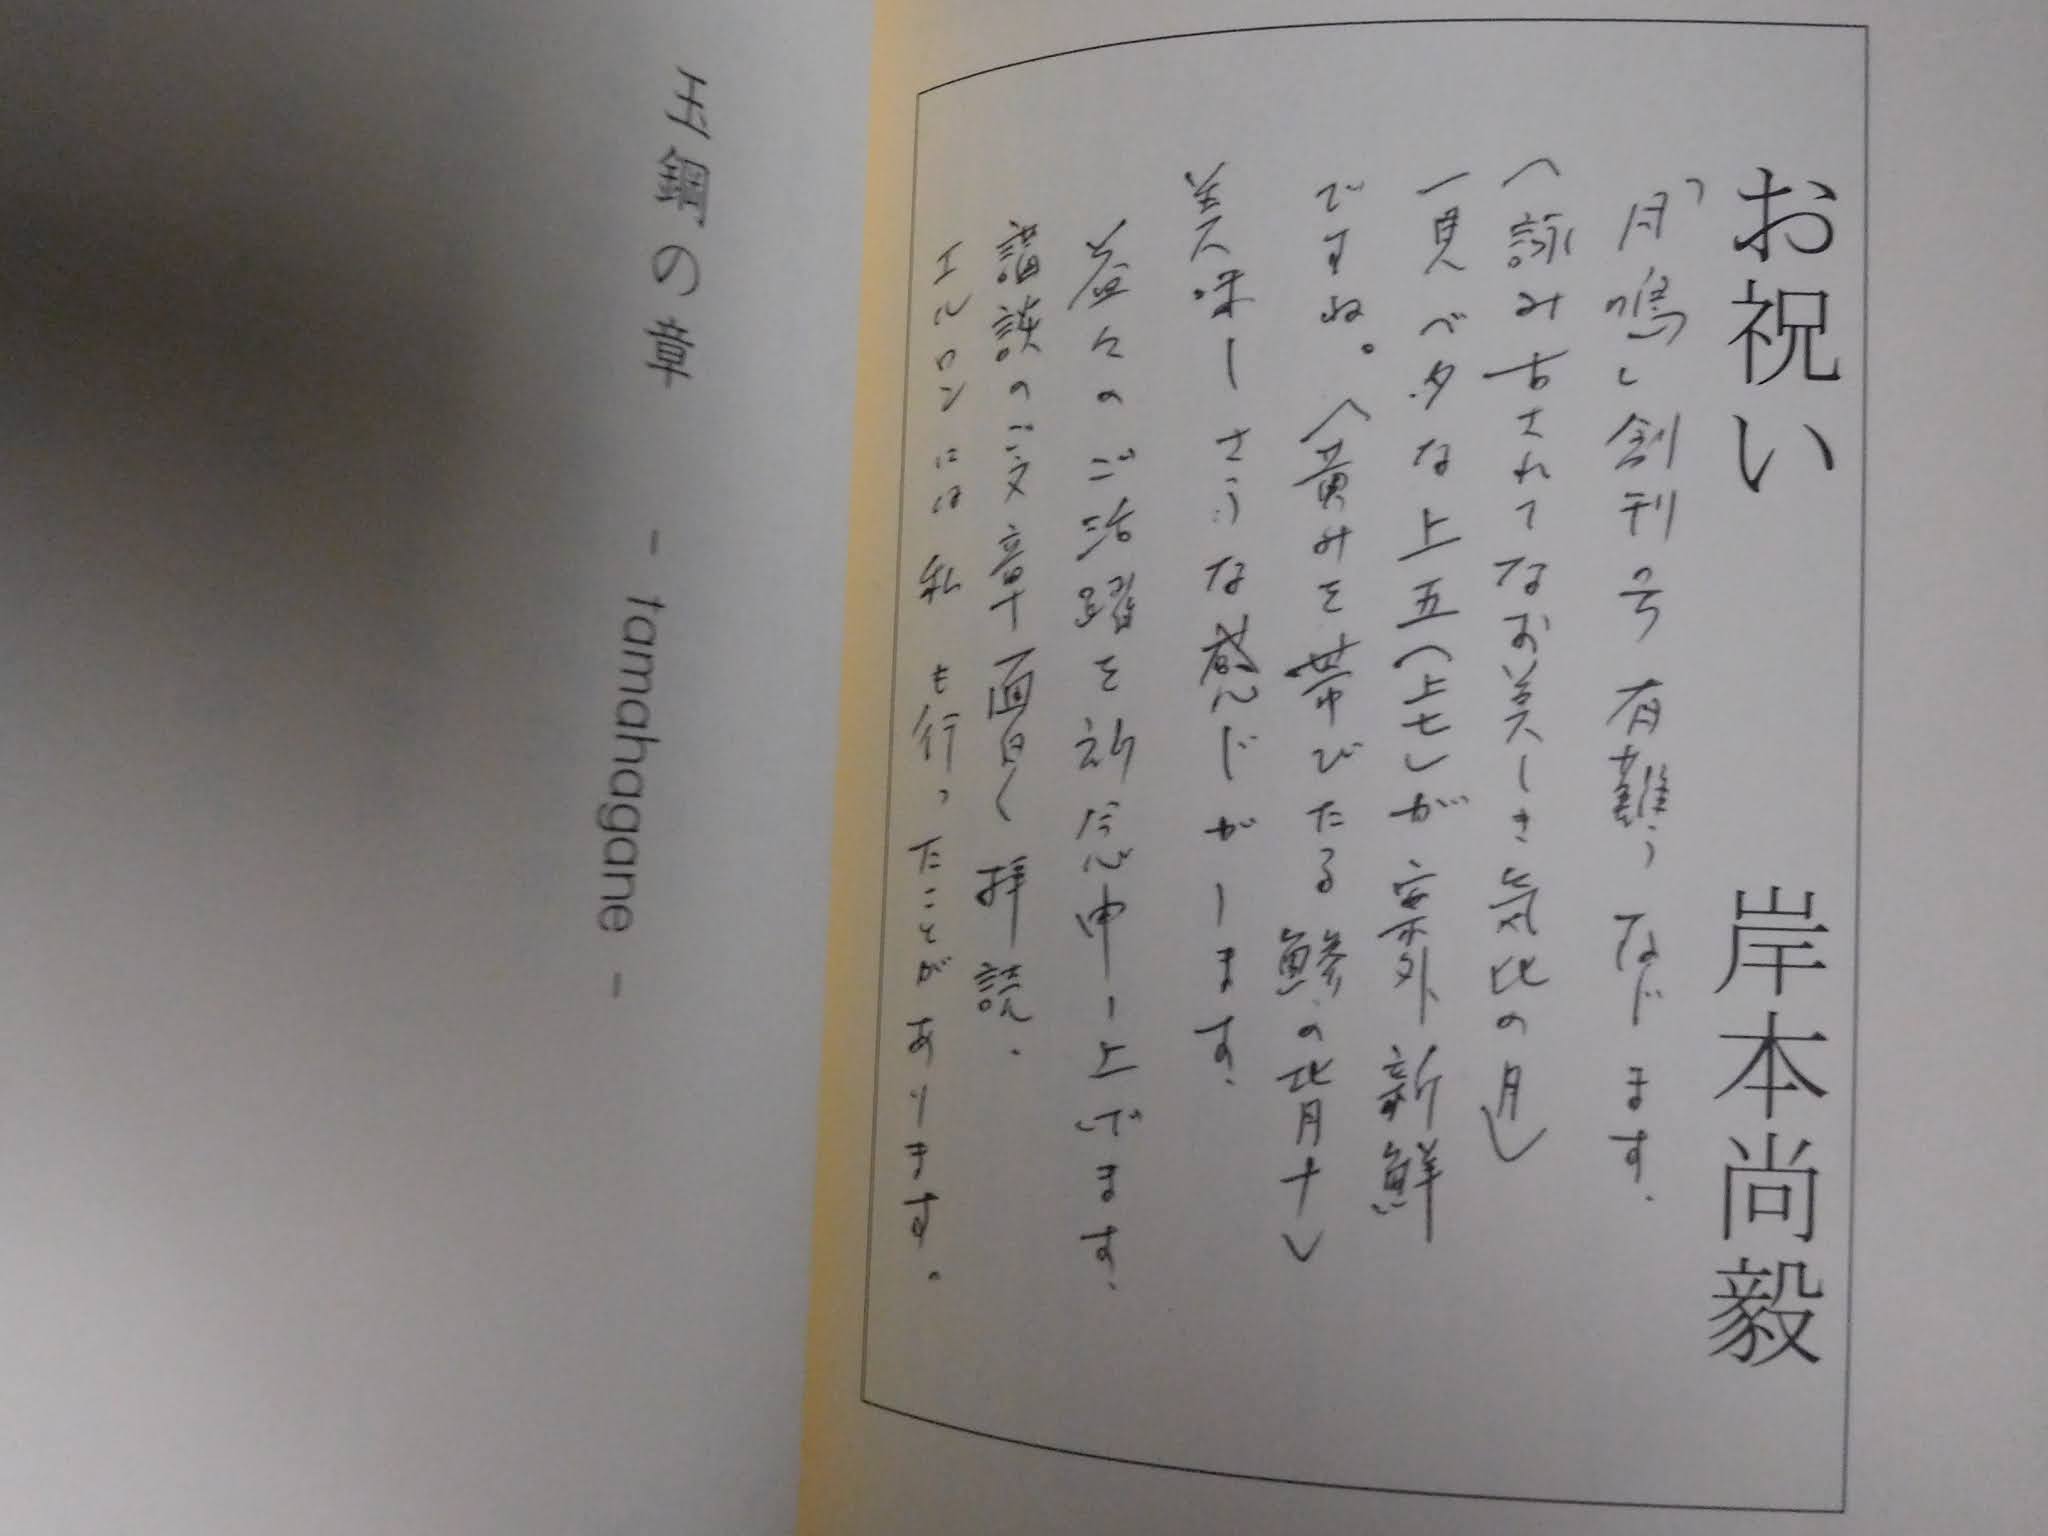 お祝い 岸本尚毅
「月鳴」創刊号有難うなじます。
〈詠み古されてなお美しき気比の月〉
一見ベタな上五(上七)が案外新鮮
ですね。〈黄みを帯びたる鯵の背月十〉
美味しさうな感じがします。
益々のご活躍を祈念申し上げます。
諧謔のご文章面白く拝読。
エルロンには私も行ったことがあります。
玉鋼の章 - tamahagane -